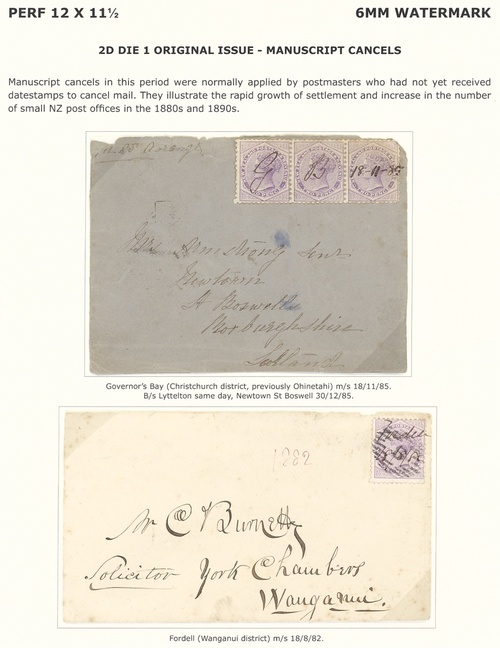 PERF 12 X 11½
6MM WATERMARK
2D DIE 1 ORIGINAL ISSUE - MANUSCRIPT CANCELS
Manuscript cancels in this period were normally applied by postmasters who had not yet received
datestamps to cancel mail. They illustrate the rapid growth of settlement and increase in the number
of small NZ post offices in the 1880s and 1890s.
G B 18-11-85
Mrs Armstrong Senr
Newtown
St Boswells
Roxburghshire
Governor's Bay (Christchurch district, previously Ohinetahi) m/s 18/11/85.
B/s Lyttelton same day, Newtown St Boswell 30/12/85.
1882
Mr C Burnett
Solicitor York Chambers
Wanganui.
Fordell (Wanganui district) m/s 18/8/82.